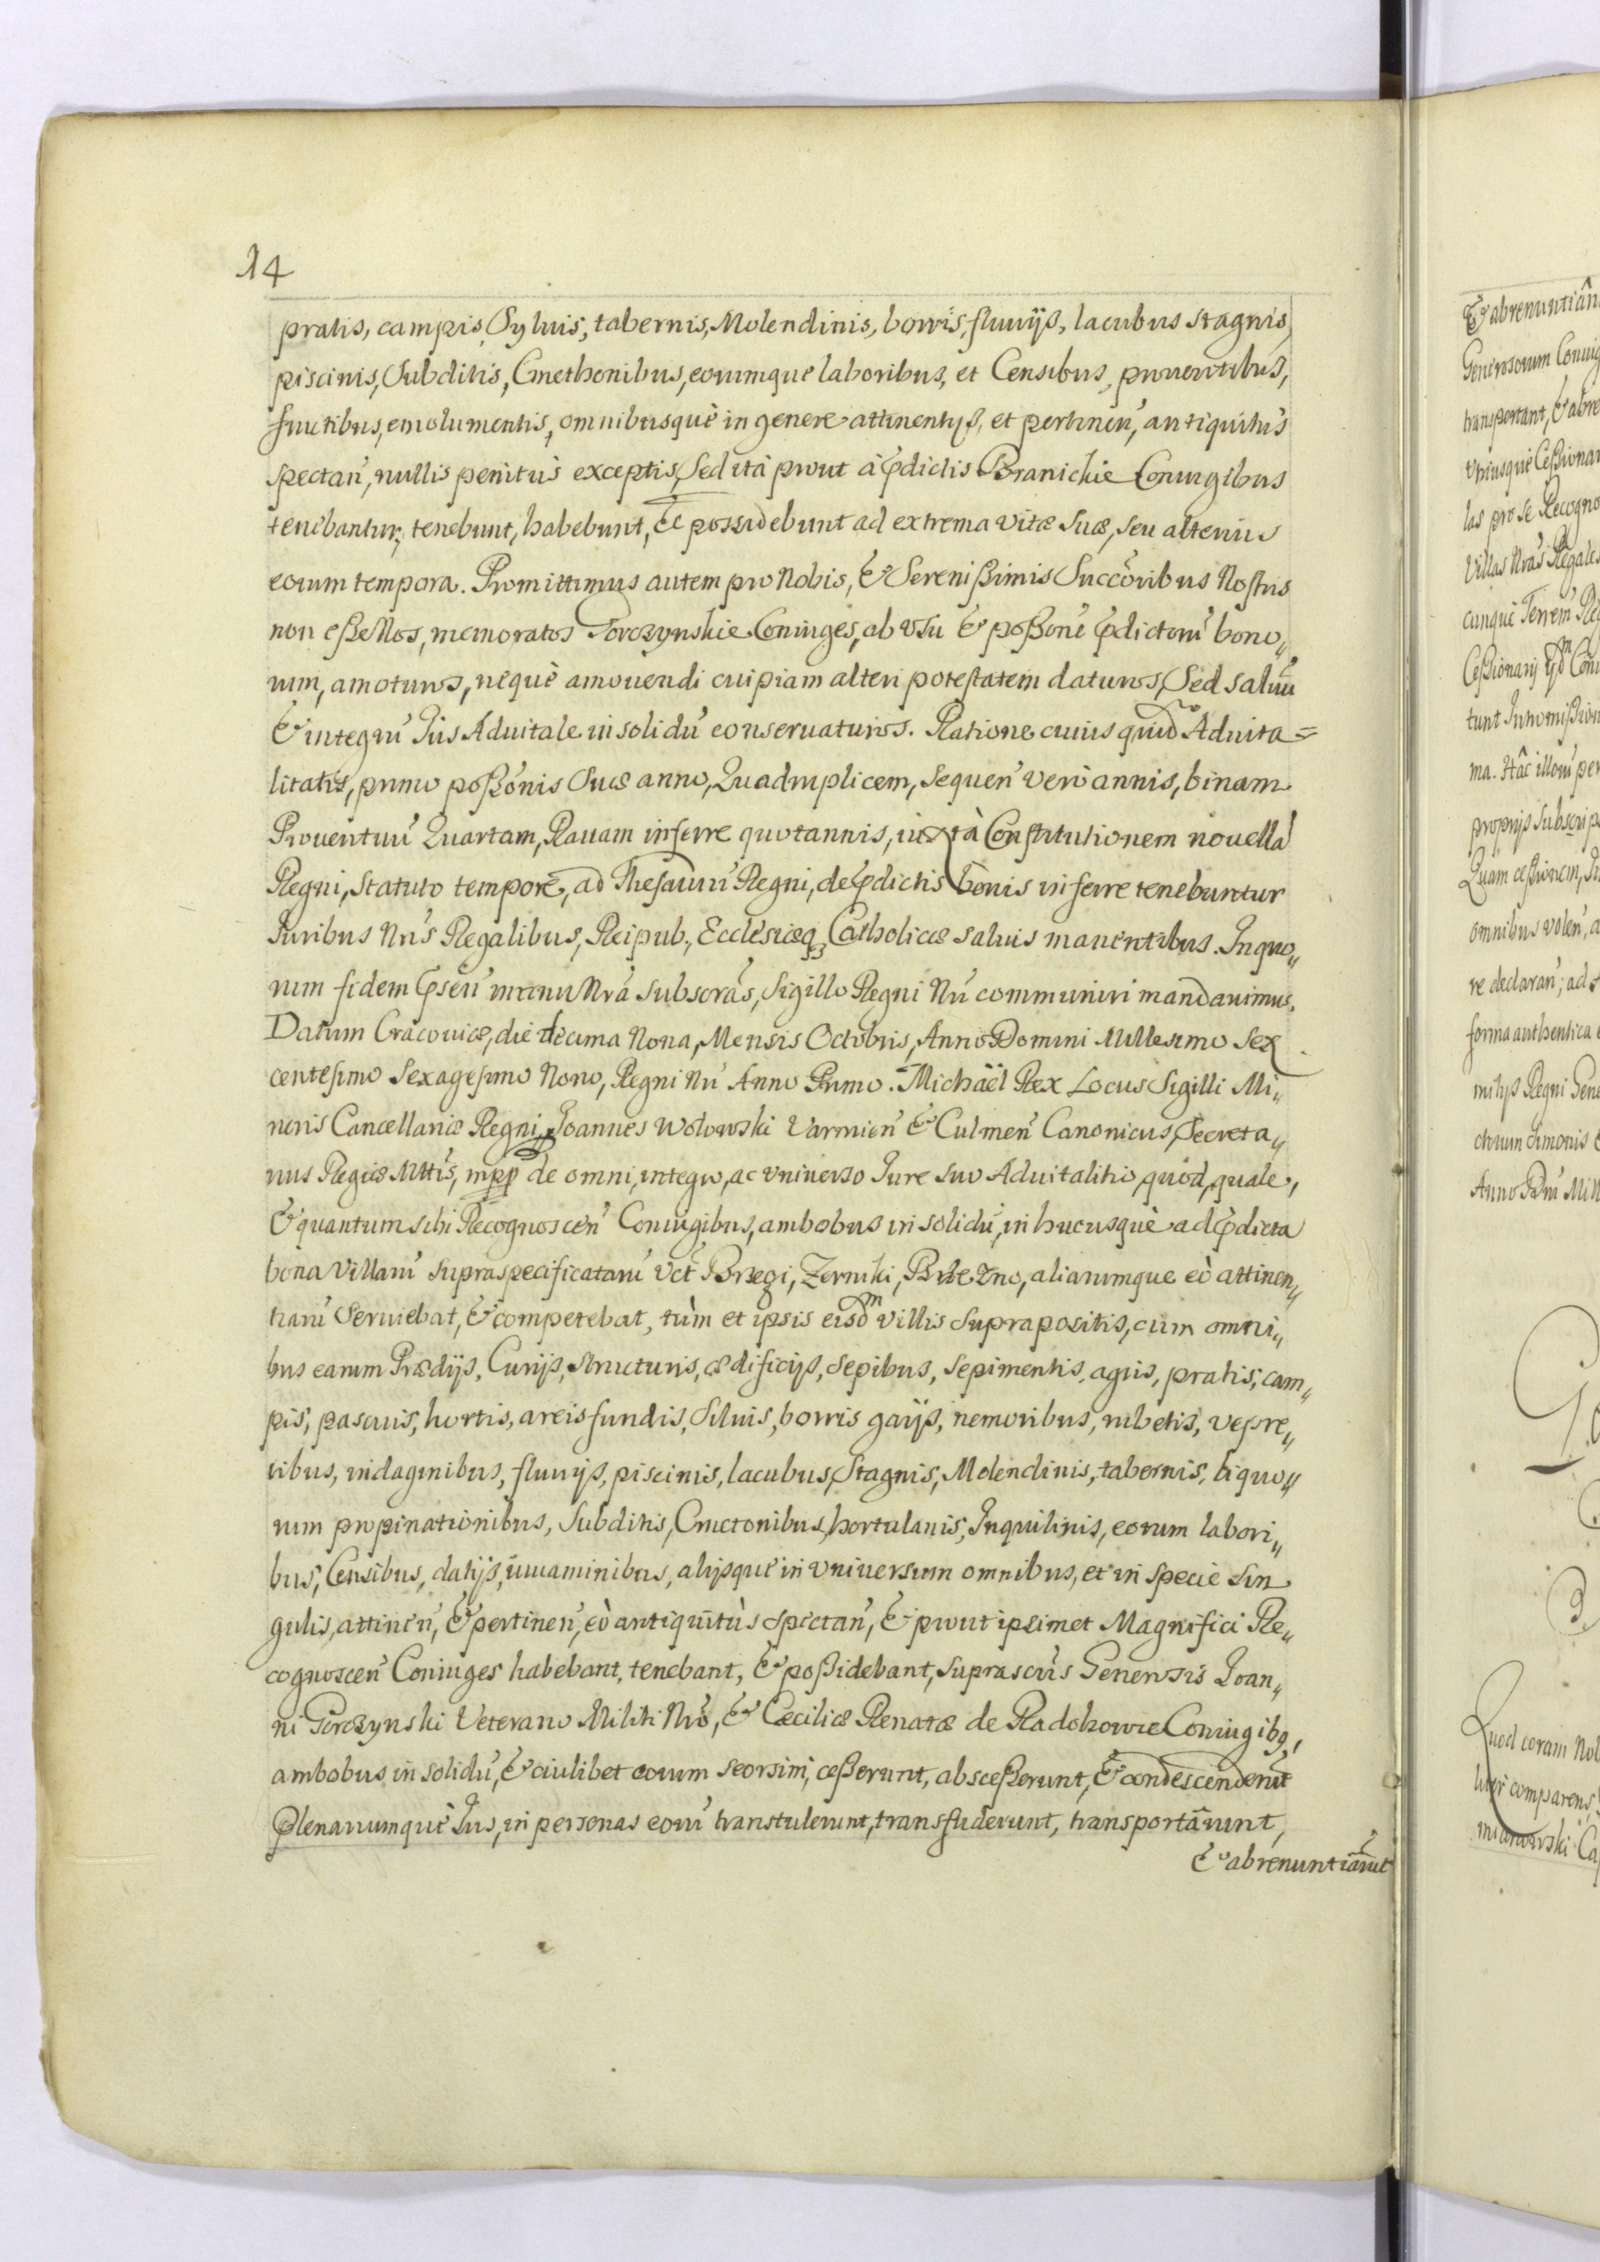 14
pratis, campis, Syluis, tabernis, Molendinis, borris, fluuijs, lacubus stagnis,
piscinis, Subditis, Cmethonibus, eorumque laboribus, et Censibus, prouentibus,
fructibus, emolumentis, omnibusquè in genere attinentijs, et pertinen̄, antiquitùs
spectan̄, nullis penitùs exceptis, Sed ità prout à p̄dictis Branickie Coniugibus
tenebantur, tenebunt, habebunt, & possidebunt ad extrema vitæ suæ, seu alterius
eorum tempora. Promittimus autem pro Nobis, & Serenißimis Succōribus Nostris
non eße Nos, memoratos Torczynskie Coniuges, ab vsu & poßone p̄dictorū bono„
rum, amoturos, nequè amouendi cuipiam alteri potestatem daturos, Sed saluū
& integrū Jus Aduitale in solidū conseruaturos. Ratione cuius quidē Aduita=
litatis, primo poßōnis Suæ anno, Quadruplicem, sequen̄ verò annis, binam
Prouentuū Quartam, Rauam inferre quotannis, iuxtà Constitutionem nouellā
Regni, Statuto tempore, ad Thesaurū Regni, de p̄dictis bonis inferre tenebuntur
Juribus Nrīs Regalibus, Reipub., Ecclesiæq₃ Catholicæ saluis manentibus. In quo„
rum fidem p̄sen̄ manu Nrā subscrās, Sigillo Regni Nrī communiri mandauimus.
Datum Cracouiæ, die decima Nona, Mensis Octobris, Anno Domini Millesimo Sex
centesimo Sexagesimo Nono, Regni Nrī Anno Primo. Michaël Rex Locus Sigilli Mi„
noris Cancellariæ Regni, Joannes Wolowski Varmien̄ & Culmen̄ Canonicus, Secreta„
rius Regiæ Mttis, mpp de omni, integro, ac vniuerso Jure suo Aduitalitio, quod, quale,
& quantum sibi Recognoscen̄ Coniugibus, ambobus in solidū, in hucusquè ad p̄dicta
bona Villarū supraspecificatarū vct Brzegi, Zerniki, Brzezno, aliarumque eò attinen„
tiarū seruiebat, & competebat, tùm et ipsis eisdm villis suprapositis, cum omni„
bus earum Prædijs, Curijs, structuris, ædificijs, sepibus, sepimentis, agris, pratis, cam„
pis, pascuis, hortis, areis fundis, Siluis, borris gaijs, nemoribus, rubetis, vepre„
tibus, indaginibus, fluuijs, piscinis, lacubus, Stagnis, Molendinis, tabernis, liquo„
rum propinationibus, Subditis, Cmetonibus, hortulanis, Inquilinis, eorum labori„
bus, Censibus, datijs, iuuaminibus, alijsquè in vniuersum omnibus, et in specie sin
gulis, attinen̄, & pertinen̄, eò antiquitùs spectan̄, & prout ipsimet Magnifici Re„
cognoscen̄ Coniuges habebant, tenebant, & poßidebant, suprascrīs Generosis Joan„
ni Torczynski Veterano Militi Nrō, & Cæciliæ Renatæ de Radohowie Coniugibq,
ambobus in solidū, & cuilibet eorum seorsim, ceßerunt, absceßerunt, & condescenderūt
Plenariumquè Jus, in personas eorū transtulerunt, transfuderunt, transportârunt,
& abrenuntiârūt